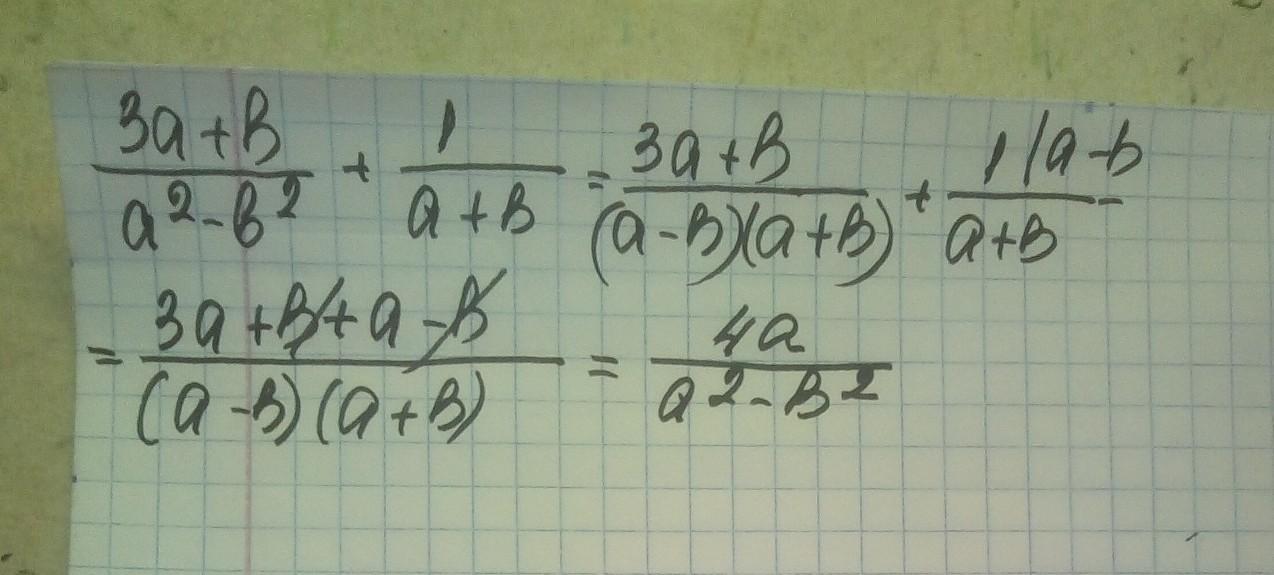 (3a+b)/(a²-b²) + 1/(a+b) = (3a+b)/((a-b)(a+b)) + 1/a-b/(a+b) -
= (3a+b+a-b)/((a-b)(a+b)) = 4a/(a²-b²)